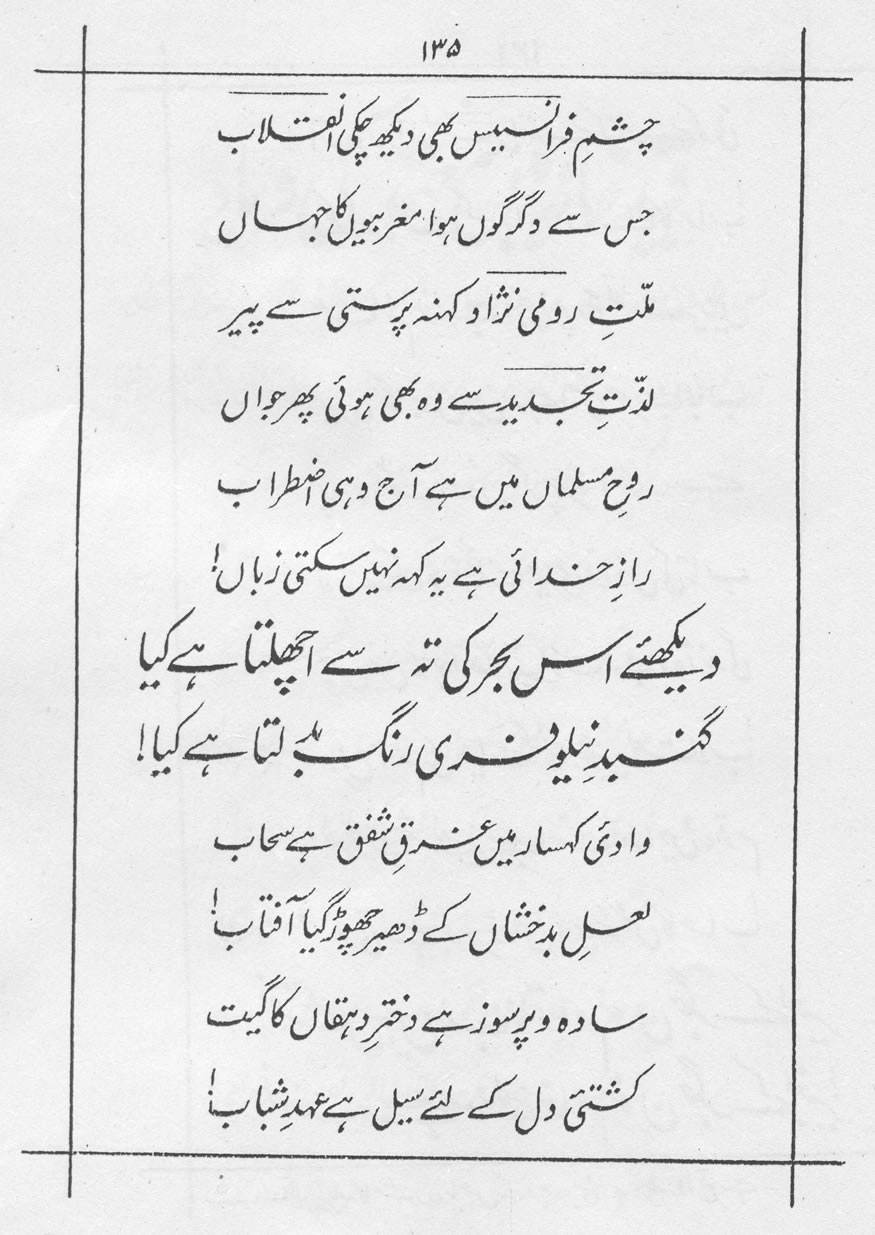 ۱۳۵
چشمِ فرانسیس بھی دیکھ چکی انقلاب
جس سے دگرگوں ہوا مغربیوں کا جہاں
ملّتِ رومی نژاد کہنہ پرستی سے پیر
لذّتِ تجدید سے وہ بھی ہوئی پھر جواں
روحِ مسلماں میں ہے آج وہی اضطراب
رازِ خدائی ہے یہ کہہ نہیں سکتی زباں!
دیکھئے اس بحر کی تہ سے اچھلتا ہے کیا
گنبدِ نیلوفری رنگ بدلتا ہے کیا!
وادئ کہسار میں غرقِ شفق ہے سحاب
لعلِ بدخشاں کے ڈھیر چھوڑ گیا آفتاب!
سادہ و پرسوز ہے دخترِ دہقاں کا گیت
کشتئ دل کے لئے سیل ہے عہدِ شباب!